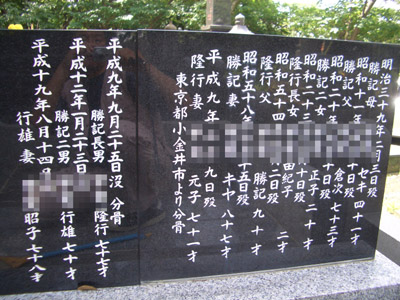 明治三十九年二月三日歿
勝記母 セキ 四十一才
昭和十一年 十日歿
勝記父 倉次 十三才
昭和二十年 十日歿
勝記二女 正子 二十才
昭和二十三 十日歿
隆行長女 由紀子 二才
昭和五十四 二日歿
隆行父 勝記 九十才
昭和五十八年 十五日歿
勝記妻 キヤ 八十七才
平成九年 九日歿
隆行妻 元子 七十一才
東京都小金井市より分骨
平成九年九月二十五日没 分骨
勝記長男 隆行 七十七才
平成十二年二月二十三日
勝記二男 行雄 七十才
平成十九年八月十四日
行雄妻 昭子 七十八才